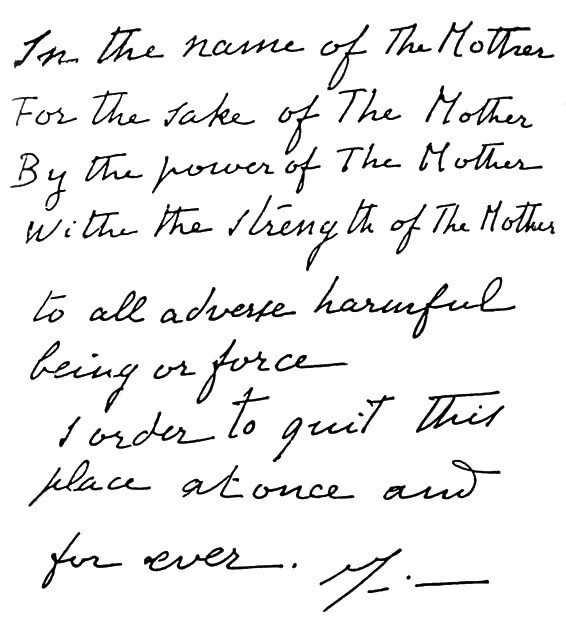 In the name of The Mother
For the sake of The Mother
By the power of The Mother
Withe the strength of The Mother
to all adverse harmful
being or force
I order to quit this
place at once and
for ever.